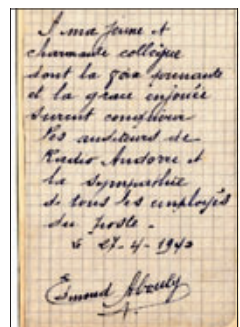 A ma jeune et
charmante collègue
dont la voix prenante
et la grâce enjouée
surent conquérir
les auditeurs de
Radio Andorre et
la sympathie
de tous les employés
du poste.
le 27-4-1940